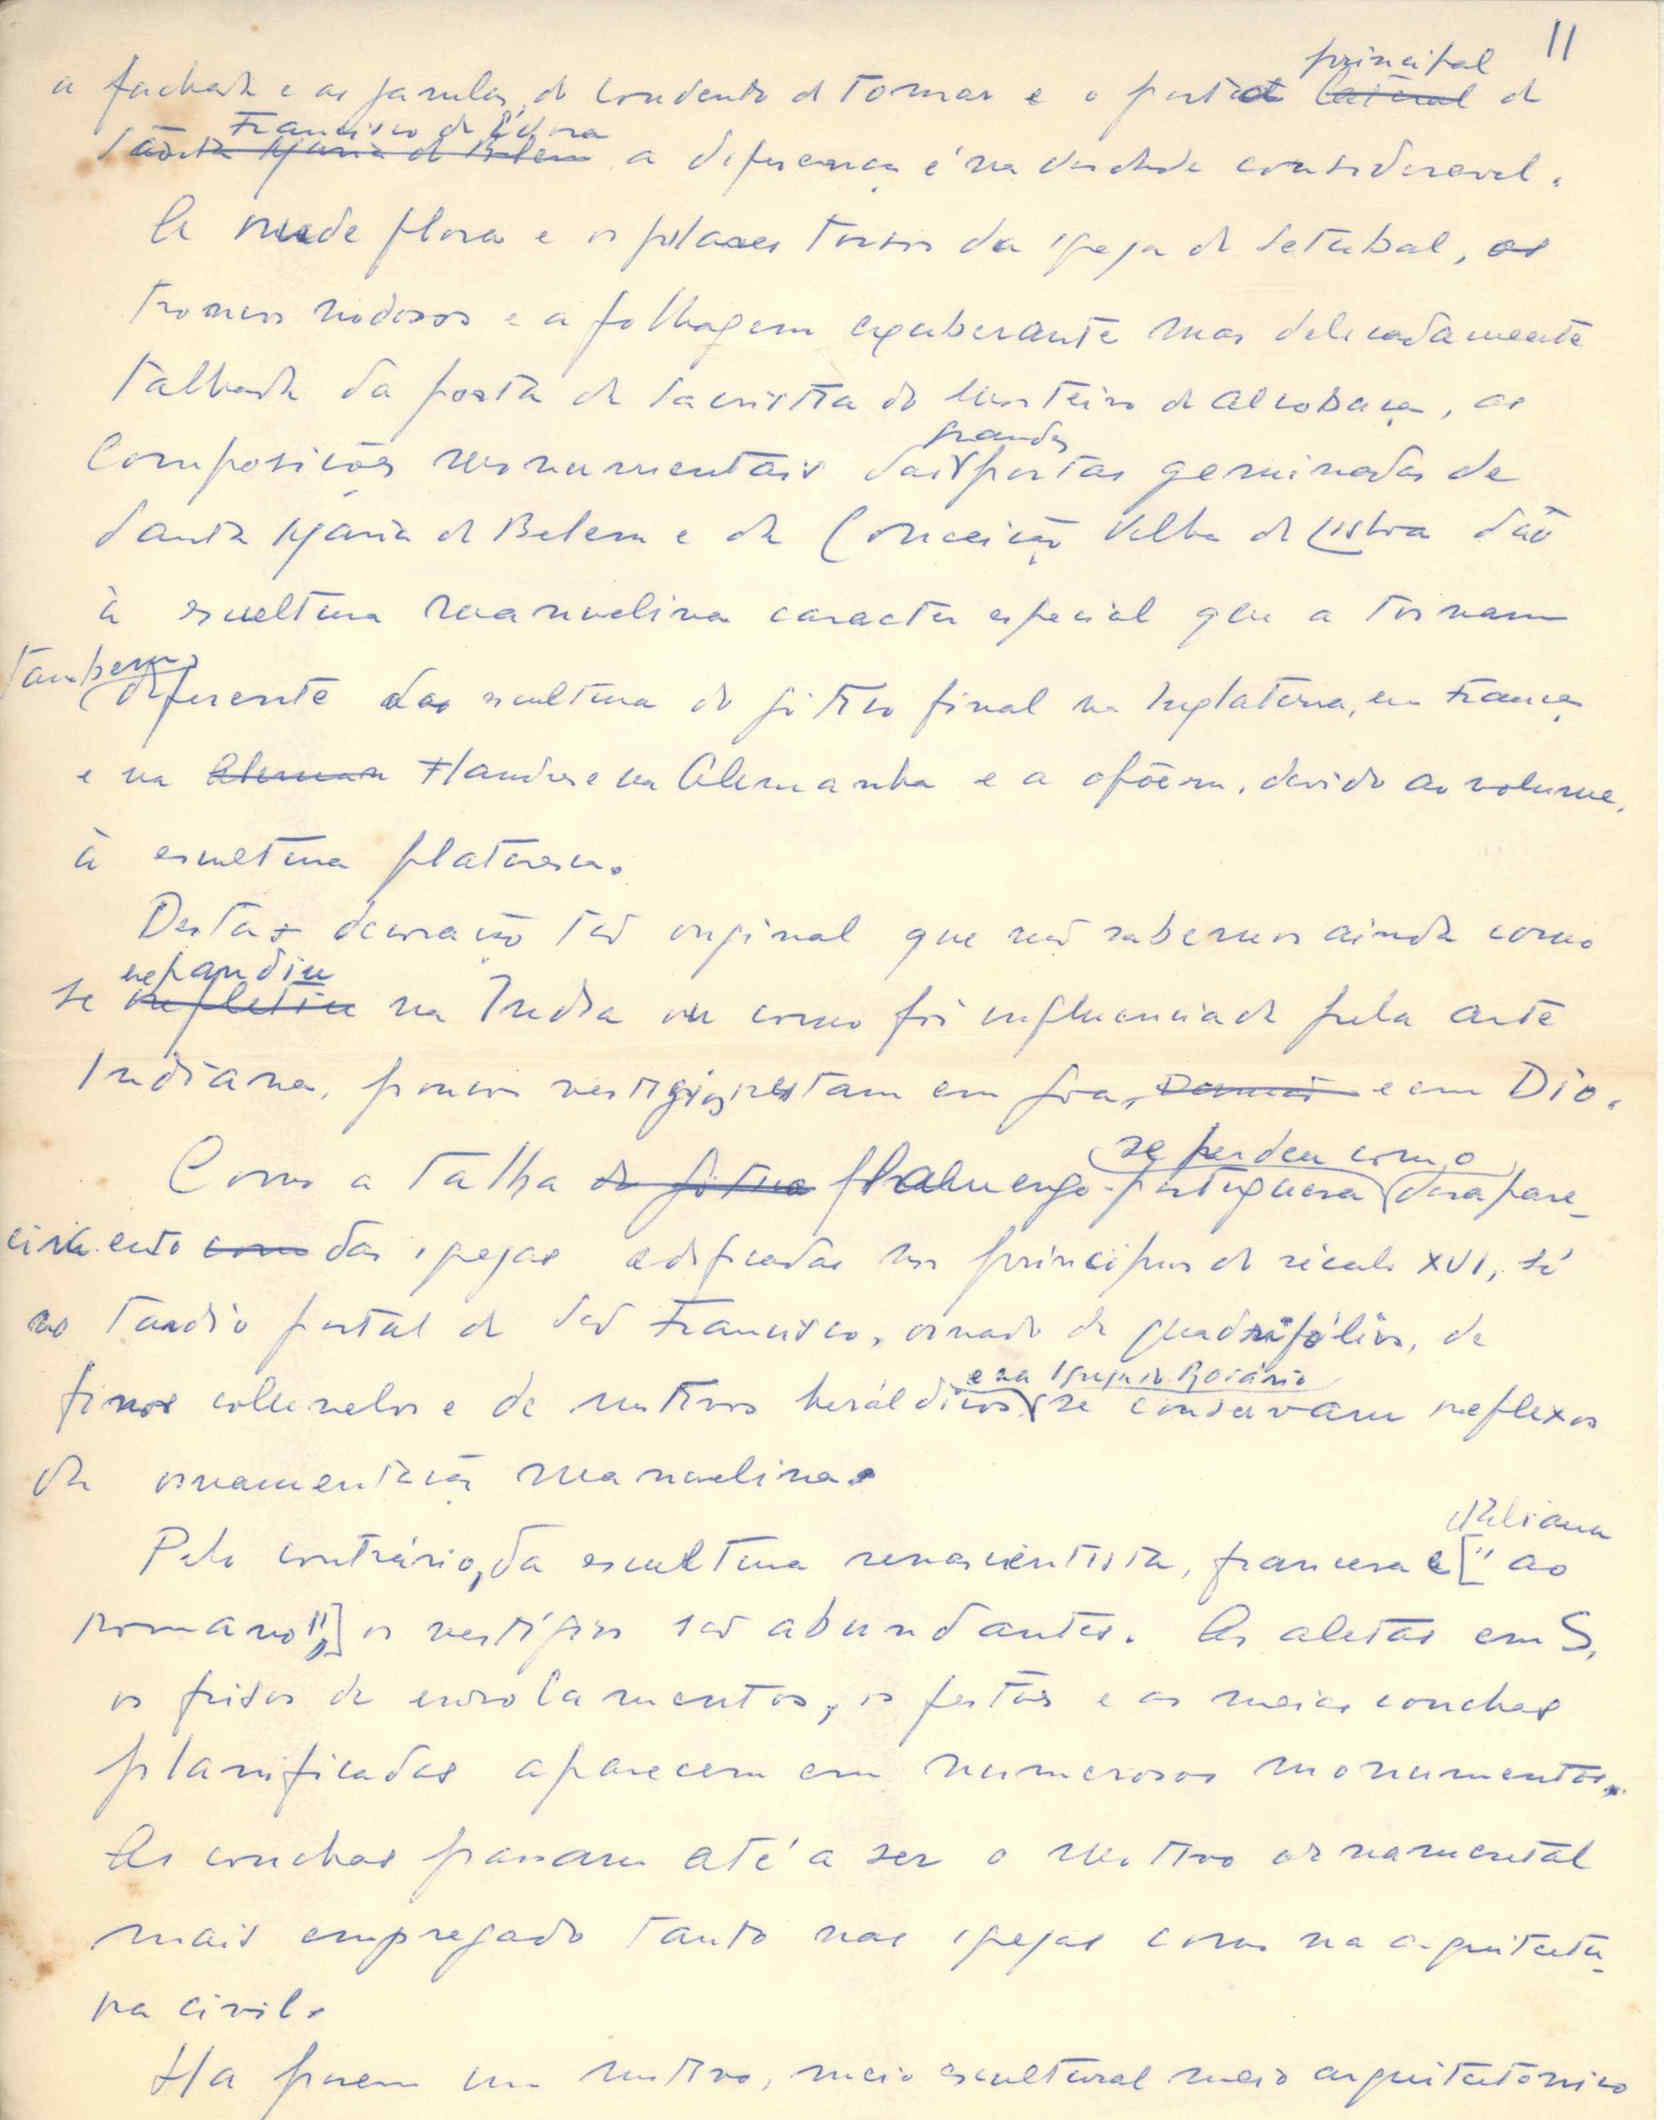 11
principal
a fachada e as janelas do convento de Tomar e o portal lateral de
Francisco de Évora
São Santa Maria de Belem a diferença é na verdade consideravel.
A rude flora e os pilares torsos da igreja de Setubal, os
troncos nodosos e a folhagem exuberante mas delicadamente
talhada da porta da sacristia do Mosteiro de Alcobaça, as
grandes
composições monumentais das portas geminadas de
Santa Maria de Belem e da Conceição Velha de Lisboa dão
à escultura manuelina caracter especial que a tornam
tambem
diferente da escultura do gótico final na Inglaterra, em França
e na Aleman Flandres e na Alemanha e a opõem, devido ao volume,
à escultura plateresca.
Desta decoração tão original que não sabemos ainda como
expandiu
se reflectiu na India ou como foi influenciada pela arte
Indiana, poucos vestigios restam em Goa, Damão e em Dio.
se perdeu com o
Como a talha do gótico flamengo-portuguesa desapare-
cimento com das igrejas edificadas nos principios do século XVI, só
no tardio portal de São Francisco, ornado de quadrifólios, de
e na Igreja do Rosário
finos colunelos e de motivos heráldicos se conservam reflexos
da ornamentação manuelina.
italiana
Pelo contrário, da escultura renascentista, francesa e ["ao
romano",] os vestígios são abundantes. As aletas em S,
os frisos de enrolamentos, os festões e as meias conchas
planificadas aparecem em numerosos monumentos.
As conchas passam até a ser o motivo ornamental
mais empregado tanto nas igrejas como na arquitectu-
ra civil.
Ha porem um motivo, meio escultural meio arquitectónico